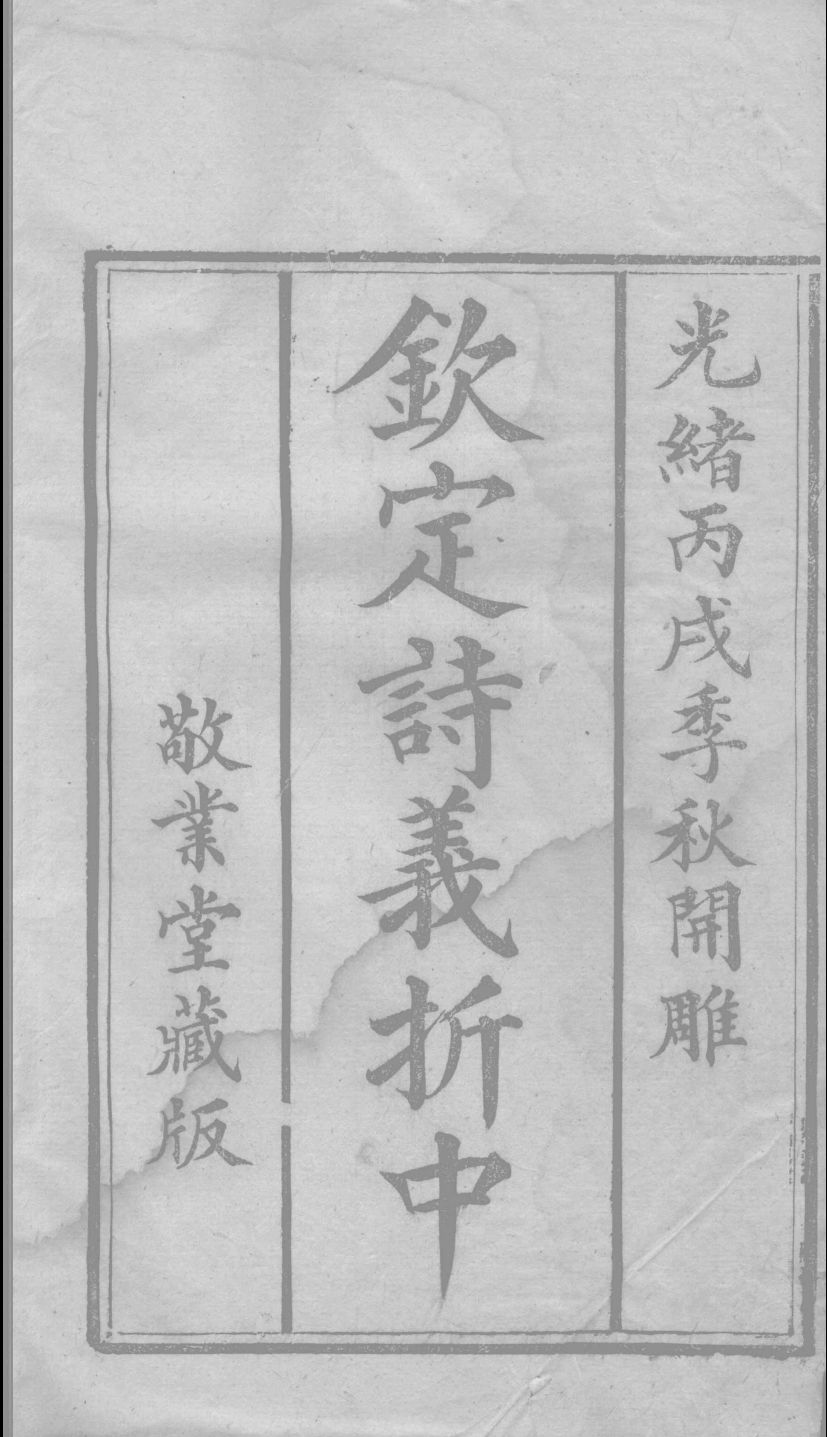 光緒丙戌季秋開雕
欽定詩義折中
敬業堂藏版